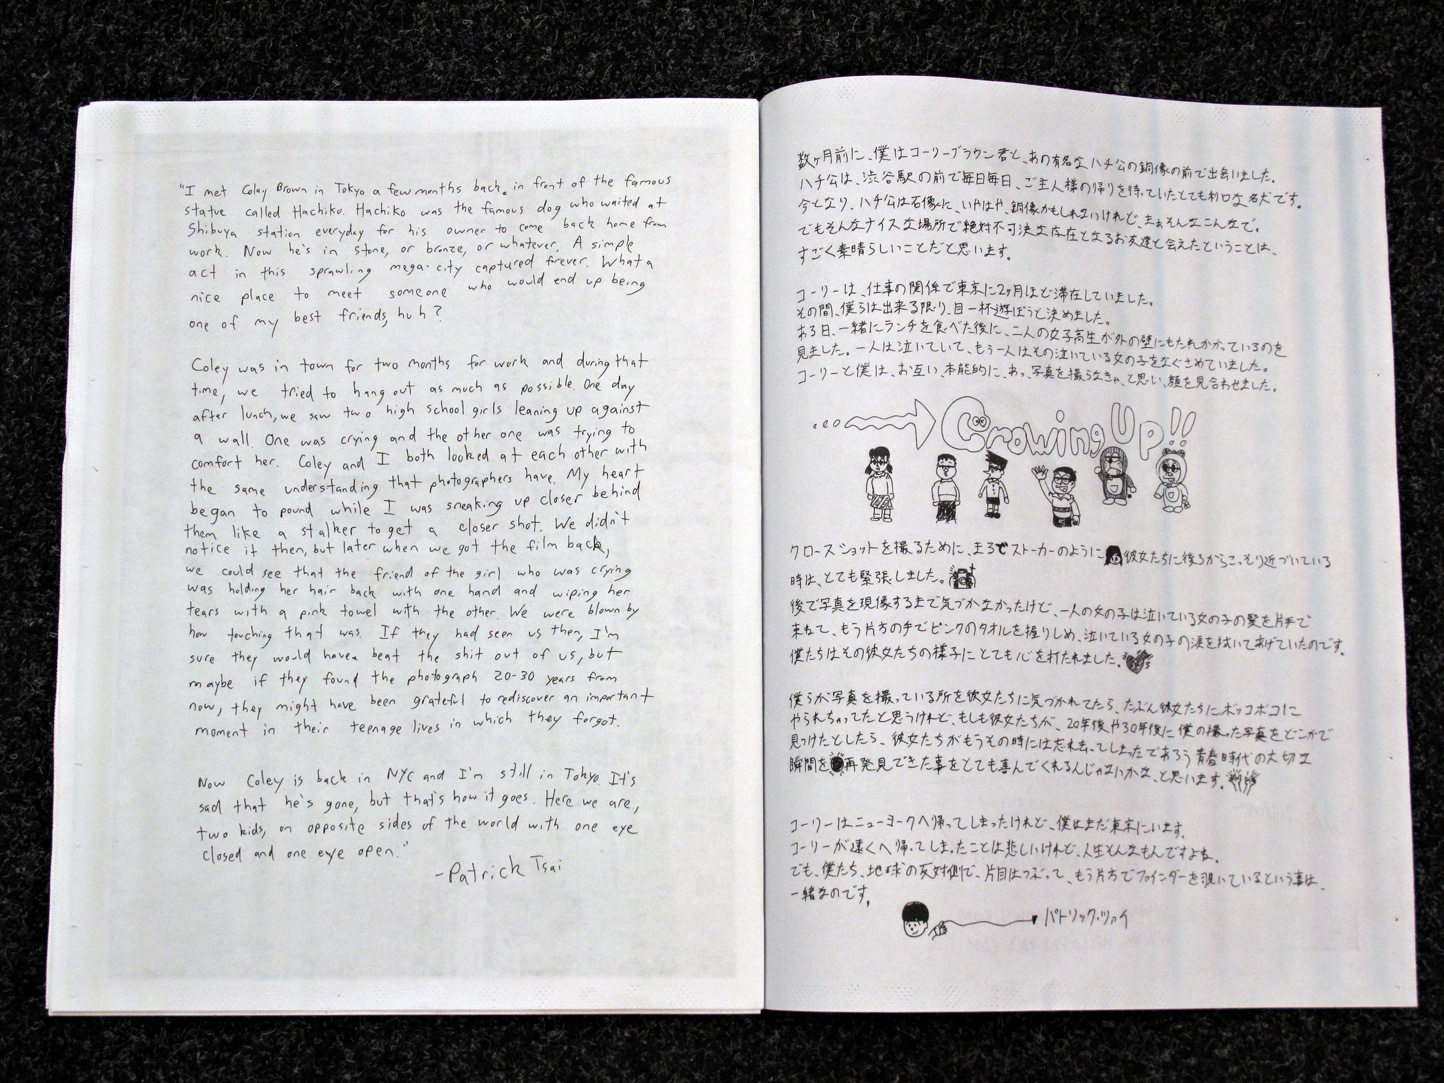 "I met Coley Brown in Tokyo a few months back, in front of the famous
statue called Hachiko. Hachiko was the famous dog who waited at
Shibuya station everyday for his owner to come back home from
work. Now he's in stone, or bronze, or whatever. A simple
act in this sprawling mega-city captured frever. What a
nice place to meet someone who would end up being
one of my best friends, huh?
Coley was in town for two months for work and during that
time, we tried to hang out as much as possible. One day
after lunch, we saw two high school girls leaning up against
a wall. One was crying and the other one was trying to
comfort her. Coley and I both looked at each other with
the same understanding that photographers have. My heart
began to pound while I was sneaking up closer behind
them like a stalker to get a closer shot. We didn't
notice it then, but later when we got the film back,
we could see that the friend of the girl who was crying
was holding her hair back with one hand and wiping her
tears with a pink towel with the other. We were blown by
how touching that was. If they had seen us then, I'm
sure they would havea beat the shit out of us, but
maybe if they found the photograph 20-30 years from
now, they might have been grateful to rediscover an important
moment in their teenage lives in which they forgot.
Now Coley is back in NYC and I'm still in Tokyo. It's
sad that he's gone, but that's how it goes. Here we are,
two kids, on opposite sides of the world with one eye
closed and one eye open."
-Patrick Tsai
数ヶ月前に、僕はコーリーブラウン君と、あの有名なハチ公の銅像の前で出会いました。
ハチ公は、渋谷駅の前で毎日毎日、ご主人様の帰りを待っていたとても利口な名犬です。
今となり、ハチ公は石像に、いやはや、銅像かもしれないけれど、まぁそんなこんなで。
でもそんなナイスな場所で絶対不可決な存在となるお友達と会えたということは、
すごく素晴らしいことだと思います。
コーリーは、仕事の関係で東京に2ヶ月ほど滞在していました。
その間、僕らは出来る限り、目一杯遊ぼうと決めました。
ある日、一緒にランチを食べた後に、二人の女子高生が外の壁にもたれかかっているのを
見ました。一人は泣いていて、もう一人はその泣いている女の子をなぐさめていました。
コーリーと僕は、お互い、本能的に、あっ、写真を撮らなきゃ、と思い、顔を見合わせました。
Growing Up!!
クロースショットを撮るために、まるでストーカーのように彼女たちに後ろからこっそり近づいている
時は、とても緊張しました。
後で写真を現像するまで気づかなかったけど、一人の女の子は泣いている女の子の髪を片手で
束ねて、もう片方の手でピンクのタオルを握りしめ、泣いている女の子の涙を拭いてあげていたのです。
僕たちはその彼女たちの様子にとても心を打たれました。
僕らが写真を撮っている所を彼女たちに気づかれてたら、たぶん彼女たちにボッコボコに
やられちゃってたと思うけれど、もしも彼女たちが、20年後や30年後に僕の撮った写真をどこかで
見つけたとしたら、彼女たちがもうその時には忘れ去ってしまったであろう青春時代の大切な
瞬間を再発見できた事をとても喜んでくれるんじゃないかな、と思います。
コーリーはニューヨークへ帰ってしまったけれど、僕はまだ東京にいます。
コーリーが遠くへ帰ってしまったことは悲しいけれど、人生そんなもんですよね。
でも、僕たち、地球の反対側で、片目はつぶって、もう片方でファインダーを覗いているという事は、
一緒なのです。
パトリック・ツァイ